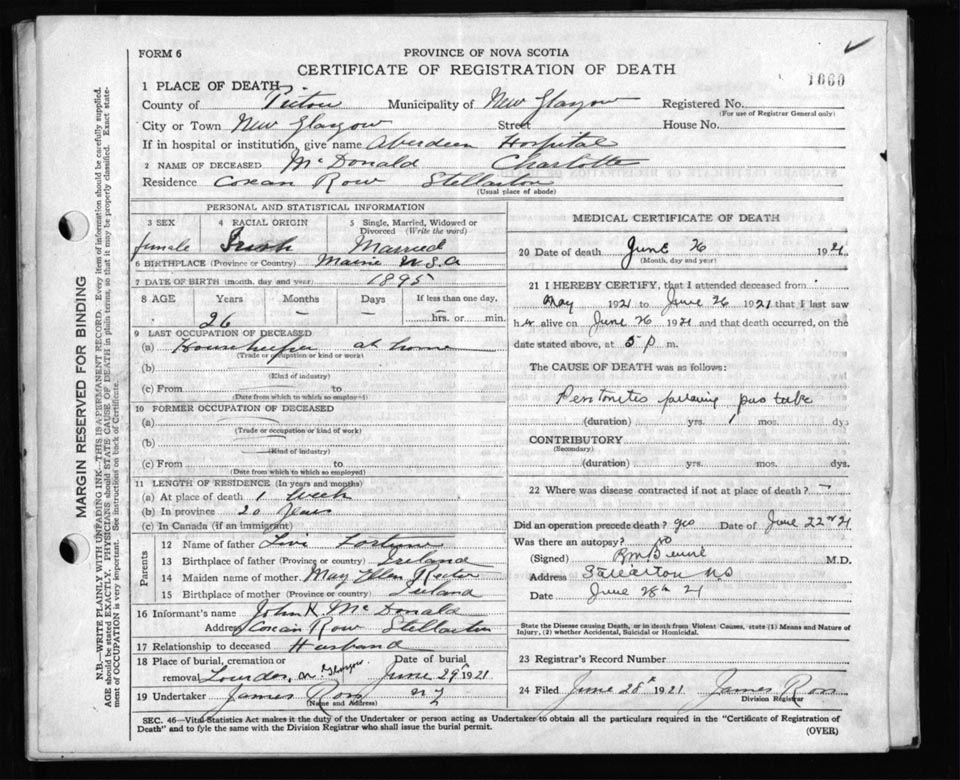 FORM 6
PROVINCE OF NOVA SCOTIA
CERTIFICATE OF REGISTRATION OF DEATH
1060
1 PLACE OF DEATH
County of Pictou Municipality of New Glasgow Registered No.
(For use of Registrar General only)
City or Town New Glasgow Street House No.
If in hospital or institution, give name Aberdeen Hospital
2 NAME OF DECEASED McDonald Charlotte
Residence Row Stellarton
(Usual place of abode)
PERSONAL AND STATISTICAL INFORMATION
3 SEX 4 RACIAL ORIGIN 5 Single, Married, Widowed or Divorced (Write the word)
female Irish Married
6 BIRTHPLACE (Province or Country) Maine U.S.A
7 DATE OF BIRTH (month, day and year) 1895
8 AGE Years Months Days If less than one day,
26 – – – hrs. or min.
9 LAST OCCUPATION OF DECEASED
(a) Housekeeper at home
(Trade or occupation or kind of work)
(b)
(Kind of industry)
(c) From to
(Date from which to which so employed)
10 FORMER OCCUPATION OF DECEASED
(a)
(Trade or occupation or kind of work)
(b)
(Kind of industry)
(c) From to
(Date from which to which so employed)
11 LENGTH OF RESIDENCE (In years and months)
(a) At place of death 1 Week
(b) In province 20 Years
(c) In Canada (if an immigrant)
Parents
12 Name of father Fortune
13 Birthplace of father (Province or country) Ireland
14 Maiden name of mother May Ellen
15 Birthplace of mother (Province or country) Ireland
16 Informant's name John K. McDonald
Address Row Stellarton
17 Relationship to deceased Husband
18 Place of burial, cremation or removal Lourdes, Date of burial June 29 1921
19 Undertaker James Ross N G
(Name and Address)
MEDICAL CERTIFICATE OF DEATH
20 Date of death June 26 1921
(Month, day and year)
21 I HEREBY CERTIFY, that I attended deceased from
May 1921 to June 26 1921 that I last saw
her alive on June 26 1921 and that death occurred, on the
date stated above, at 5 p m.
The CAUSE OF DEATH was as follows:
Peritonitis following pus tube
(duration) yrs. mos. dys
CONTRIBUTORY
(Secondary)
(duration) yrs. mos. dys.
22 Where was disease contracted if not at place of death? –
Did an operation precede death? yes Date of June 22nd 21
Was there an autopsy? no
(Signed) M.D.
Address Stellarton NS
Date June 28th 21
State the Disease causing Death, or in death from Violent Causes, state (1) Means and Nature of Injury, (2) whether Accidental, Suicidal or Homicidal.
23 Registrar's Record Number
24 Filed June 28th 1921 James Ross
Division Registrar
SEC. 46—Vital Statistics Act makes it the duty of the Undertaker or person acting as Undertaker to obtain all the particulars required in the "Certificate of Registration of
Death" and to fyle the same with the Division Registrar who shall issue the burial permit. (OVER)
MARGIN RESERVED FOR BINDING
N.B.—WRITE PLAINLY WITH UNFADING INK—THIS IS A PERMANENT RECORD. Every item of information should be carefully supplied.
AGE should be stated EXACTLY. PHYSICIANS should STATE CAUSE OF DEATH in plain terms, so that it may be properly classified. Exact state-
ment of OCCUPATION is very important. See instructions on back of Certificate.